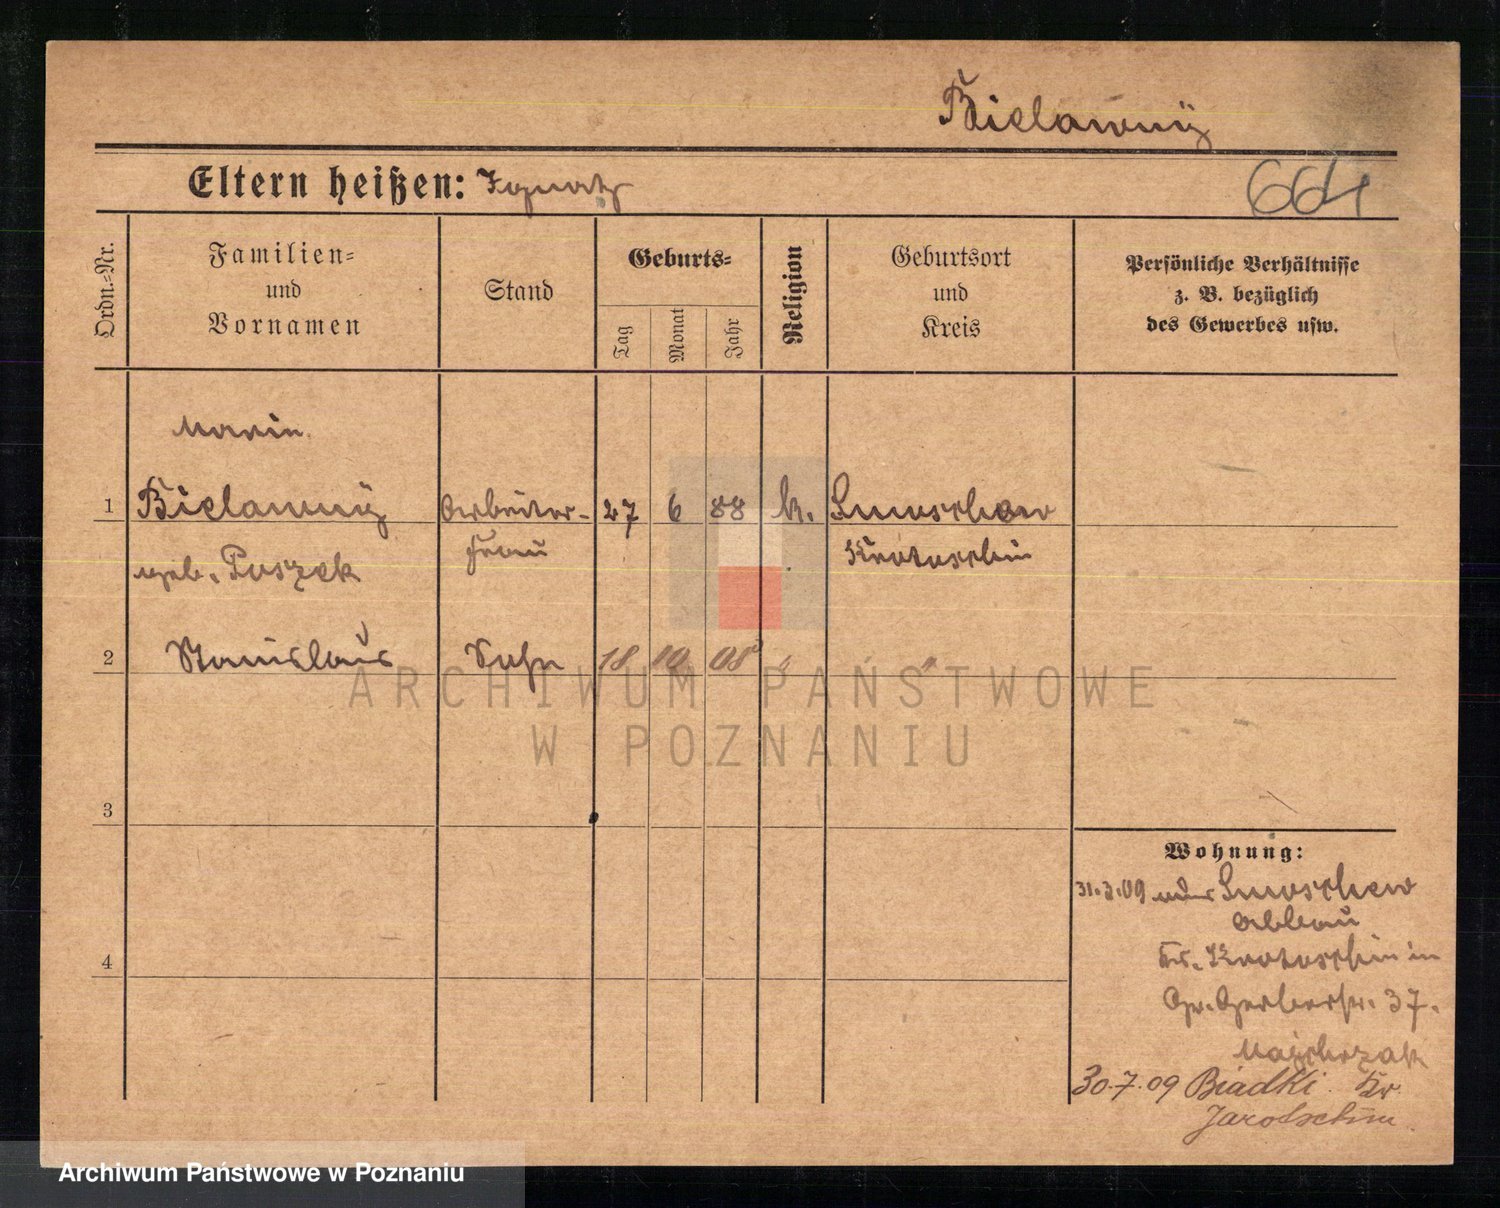 Bielawny
Eltern heißen: Ignatz
664
Ordn.=Nr.
Familien=
und
Vornamen
Stand
Geburts=
Tag
Monat
Jahr
Religion
Geburtsort
und
Kreis
Persönliche Verhältnisse
z. B. bezüglich
des Gewerbes usw.
Marie
1 Bielawny Arbeiter- 27 6 88 k. Smoschew
geb. Puszek frau Krotoschin
2 Stanislaus Sohn 18 10 08 " "
3
4
Wohnung:
31.3.09 Smoschew
Abbau
Kr. Krotoschin in
Gr. Gerberstr. 37.
Majchrzak
30.7.09 Biadki Kr
Jarotschin
ARCHIWUM PAŃSTWOWE
W POZNANIU
Archiwum Państwowe w Poznaniu